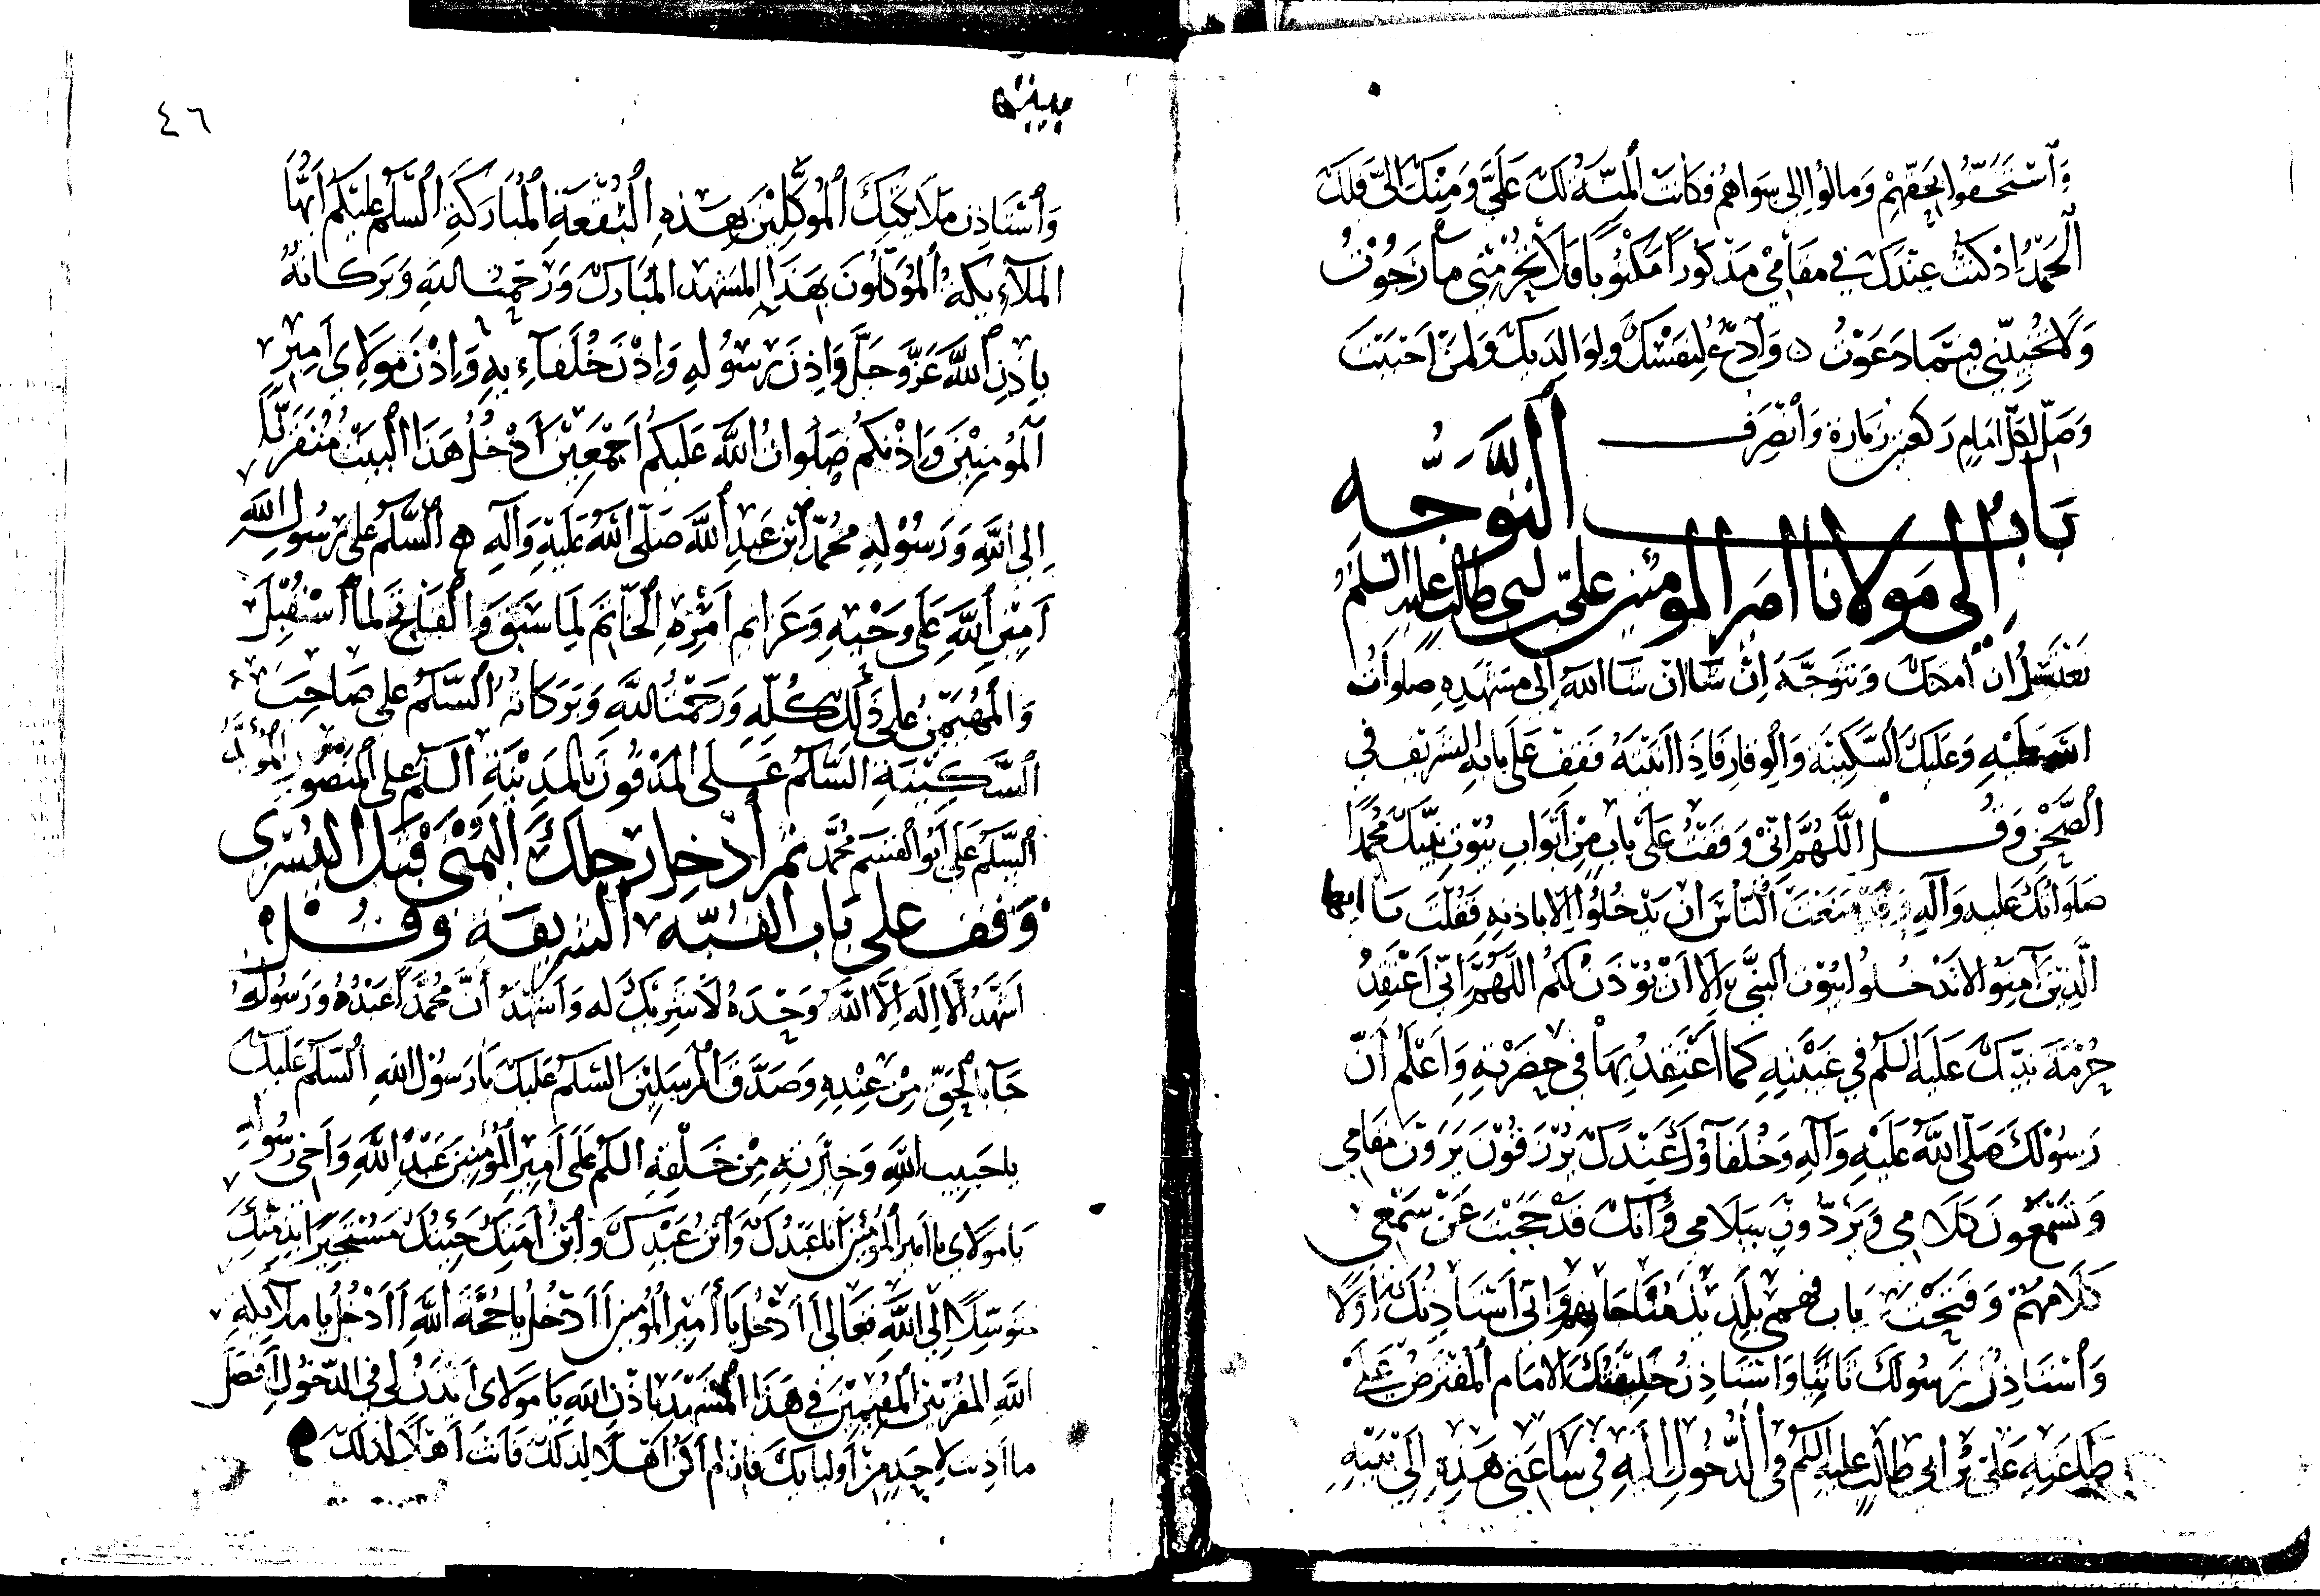 وَاسْتَخَفُّوا بِحَقِّهِمْ وَمالُوا إلى سِواهُم فَكانَتِ المِنَّةُ لَكَ عَلَيَّ وَمِنْكَ إلَيَّ فَلَكَ
الْحَمْدُ اذ كُنْتُ عِنْدَكَ في مَقامي مَذْكُوراً مَكْتُوباً فَلا تَحْرِمْني ما رَجَوْتُ
وَلا تُخَيِّبْني فيما دَعَوْتُ ه وَادْعُ لِنَفْسِكَ وَلِوالِدَيكَ وَلِمَنْ اَحْبَبْتَ
وَصَلِّ لِكُلِّ اِمامٍ رَكْعتين زيارة وَانْصَرِف
بَابُ التَّوَجُّهِ
إلى مَولانا امير المومنين علي بن ابي طالب عليه السلم
تغتسل ان امكنك وَتتوجّه اِنْ شا ان شا الله اِلى مشهده صلوات
الله عليه وَعليك السَّكينَة وَالوقار فَاِذَا اتيته فَقِف عَلَى بابه الشريف في
الصَّحْنِ وَقُل اللَّهُمَّ اِنّي وَقَفْتُ عَلى بابٍ مِنْ اَبْوابِ بُيُوتِ نَبِيِّكَ مُحَمَّدٍ
صَلَوَاتُكَ عَليه وَآلِهِ وَقَدْ مَنَعْتَ النّاسَ ان يَدْخُلُوا اِلا باذنِهِ فَقُلتَ يا ايها
الَّذِينَ آمنوا لا تَدخُلُوا بُيُوتَ النَّبيِّ اِلا اَنْ يُؤْذَنَ لَكُمْ اللَّهُمَّ اِنّي اَعْتَقِدُ
حُرْمَةَ نَبِيِّكَ عَلَيهِ السلم في غَيْبَتِهِ كَما اَعْتَقِدُ بها في حَضْرَتِهِ وَاَعْلَمُ اَنَّ
رَسُولَكَ صَلَّى اللهُ عَلَيْهِ وَآلِهِ وَخُلَفاؤُكَ عِنْدَكَ يُرْزَقُونَ يَرَوْنَ مقامي
وَيَسْمَعُونَ كَلامي وَيَرُدُّونَ سَلامي وَاَنَّكَ قَدْ حَجَبْتَ عَنْ سَمْعي
كَلامَهُمْ وَفَتَحْتَ باب فهمي بِلَذِيذِ مُناجاتهم وَاني اَسْتَاْذِنُكَ اَوَّلا
وَاَسْتَاذِنُ رَسُولَكَ ثانِياً وَاَسْتَاذِنُ خَليفَتَكَ الامام المُفْتَرَضُ عَلَيَّ
طاعَتهِ عَلِيّ بْن ابي طالبٍ عليه السلم في الدُّخُولِ اِلَيْهِ في ساعَتي هَذِهِ اِلى بَيْتِهِ
٤٦
وَاَسْتاذِن مَلائِكَتِكَ المُوَكَّلِيْنَ بِهذِهِ الْبُقْعَةِ الْمُبارَكَةِ السَّلَمُ عَلَيْكُم اَيُّهَا
المَلآئِكَةُ الْمُوَكَّلُونَ بِهَذَا المَشهد المُبَارَك وَرَحْمَتُ اللهِ وَبَرَكاتُهُ
بِاذنِ اللهِ عَزَّ وَجَلَّ وَاِذنِ رَسُولِهِ وَاِذْنِ خُلَفآءِيهِ وَاِذْنِ مَولاي اَمِير
المُومِنِيْنَ وَاِذْنِكُم صَلَواتُ اللهِ عَلَيكُم اَجْمَعينَ اَدْخُلُ هَذَا البيت مُتَقَرِّباً
اِلى اللهِ وَرَسُوْلِهِ مُحَمّدٍ بْنِ عَبدِ اللهِ صَلَّى اللهُ عَلَيْهِ وَآلِهِ ه السَّلَمُ عَلى رَسُولِ اللهِ
اَمِيْنِ اللهِ عَلَى وَحْيِهِ وَعَزايم اَمْرِهِ الْخاتَمِ لِمَا سَبَقَ وَالْفَاتِحِ لما اُسْتُقْبِلَ
وَالْمُهَيْمِنِ عَلى ذَلِكَ كُلِّهِ وَرَحْمَتُ اللهِ وَبَرَكاتُهُ السَّلَمُ عَلى صَاحِبِ
السَّكِيْنَةِ السَّلَمُ عَلَى المَدْفُونِ بِالمَدِيْنَةِ السلم على المَنْصُورِ المُؤَيَّدِ
السَّلَمُ عَلَى اَبُو القسم مُحَمَّد ثم اَدخل رجلك اليُمْنى قبل اليُسْرى
وَقف على باب القبّة الشريفة وَقُل
اَشْهَدُ اَلا اِلَه اِلَّا اللهُ وَحْدَهُ لاشَريكَ له وَاَشهَدُ اَنَّ مُحَمَّداً عَبْدُهُ وَرَسُولُهُ
جَآءَ بِالْحَقِّ مِنْ عِنْدِهِ وَصَدَّقَ الْمُرسَلِيْنَ السَّلَمُ عَليكَ يا رَسُولَ اللهِ السَّلَمُ عَلَيكَ
يا حَبِيب اللهِ وَخِيْرَتِهِ مِنْ خَلْقِهِ السلمُ عَلَى اَمِيرِ الْمُؤْمِنِينَ عَبْدِ اللهِ وَاَخي رَسُولِهِ
يا مولاي يا اَميرَ الْمُؤمِنينَ انا عَبْدُكَ وَابْنُ عَبْدِكَ وَابْنُ اَمَتِكَ جِئتُكَ مُسْتَجيراً بذمَّتِكَ
متوسِّلاً اِلَى اللهِ تعَالى اَ اَدْخُلُ يا اَميرَ الْمُؤمِنين اَ اَدْخُلُ يا حُجَّةَ اللهِ اَ اَدْخُلُ يا ملآئِكَةِ
اللهِ المُقَرَّبينَ المُقِيمِيْنَ في هَذَا المَشهَد بِاذنِ الله يا مَولاي اِئْذَنْ لي في الدّخُولِ اَفْضَلَ
ما اَذِنت لِاَحَدٍ مِنْ اَوليايك فَاِن لم اَكُنْ اَهْلاً لِذلِكَ فَاَنتَ اَهْلاً لِذلِكَ